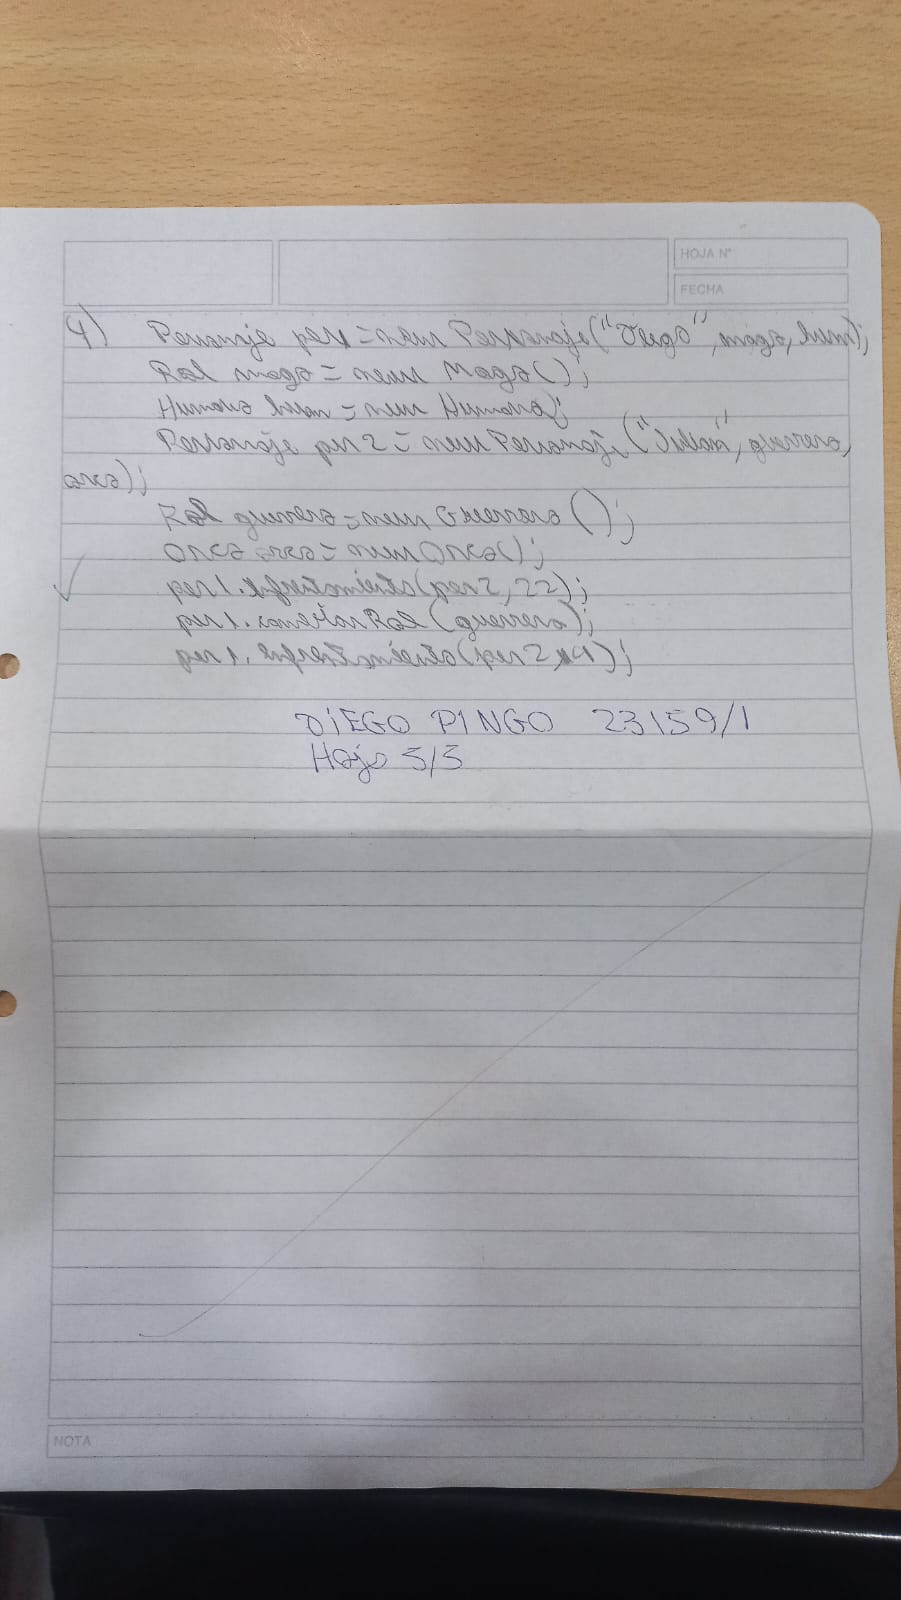 HOJA N°
FECHA
4) Personaje per1 = new Personaje("Diego", mago, hum);
Rol mago = new Mago();
Humano hum = new Humano;
Personaje per2 = new Personaje("Julian", guerrero,
orco);
Rol guerrero = new Guerrero();
Orco orco = new Orco();
per1.enfrentamiento(per2, 22);
per1.cambiarRol(guerrero);
per1.enfrentamiento(per2, 4);
DiEGO PINGO 23159/1
Hoja 5/5
NOTA